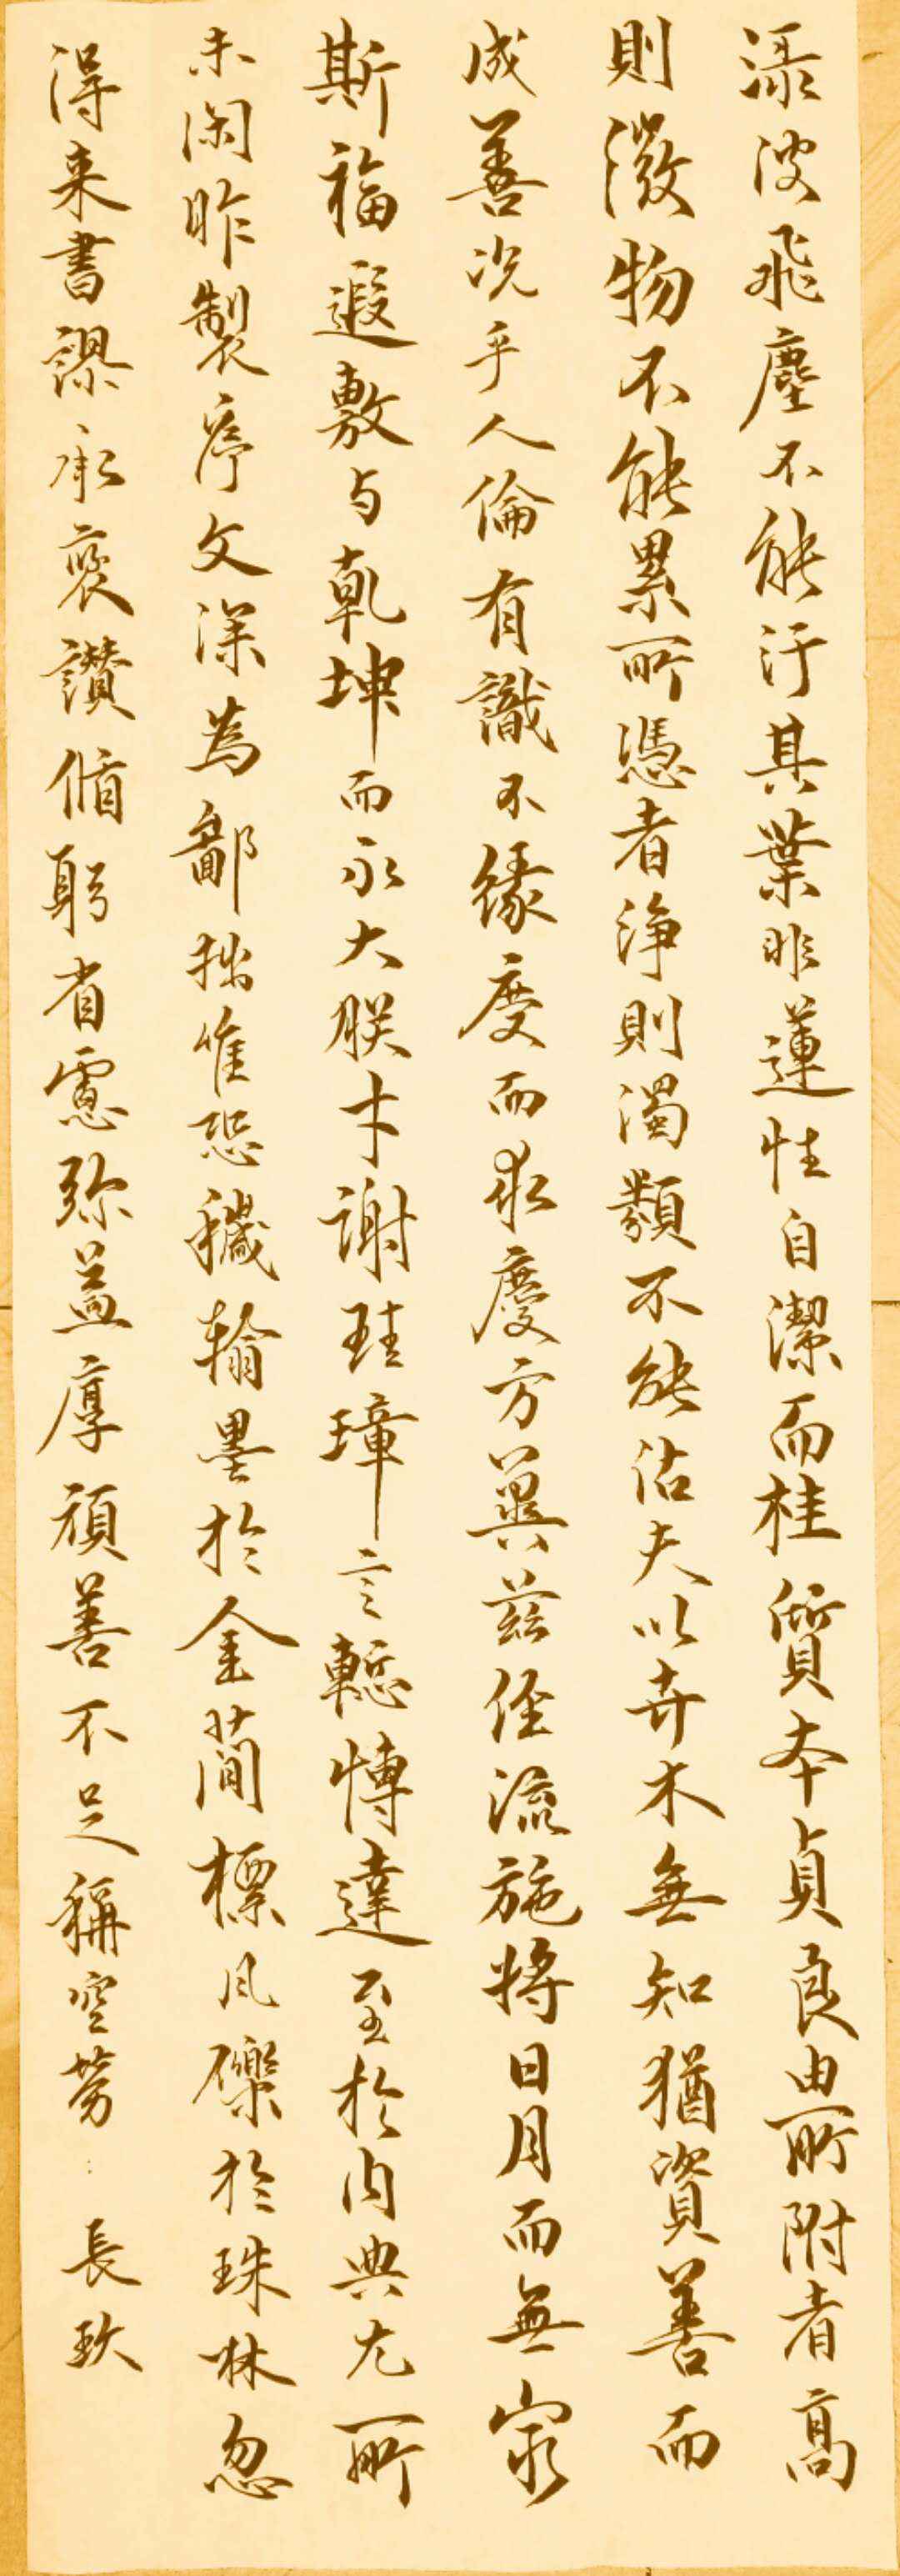 渌波飛塵不能汙其葉非蓮性自潔而桂質本貞良由所附者高
則微物不能累所憑者淨則濁類不能沾夫以卉木無知猶資善而
成善況乎人倫有識不緣慶而求慶方冀茲經流施將日月而無窮
斯福遐敷与乾坤而永大朕才謝珪璋言慙博達至於內典尤所
未閑昨製序文深為鄙拙唯恐穢翰墨於金簡標瓦礫於珠林忽
得来書謬承褒讚循躬省慮弥益厚顏善不足稱空勞